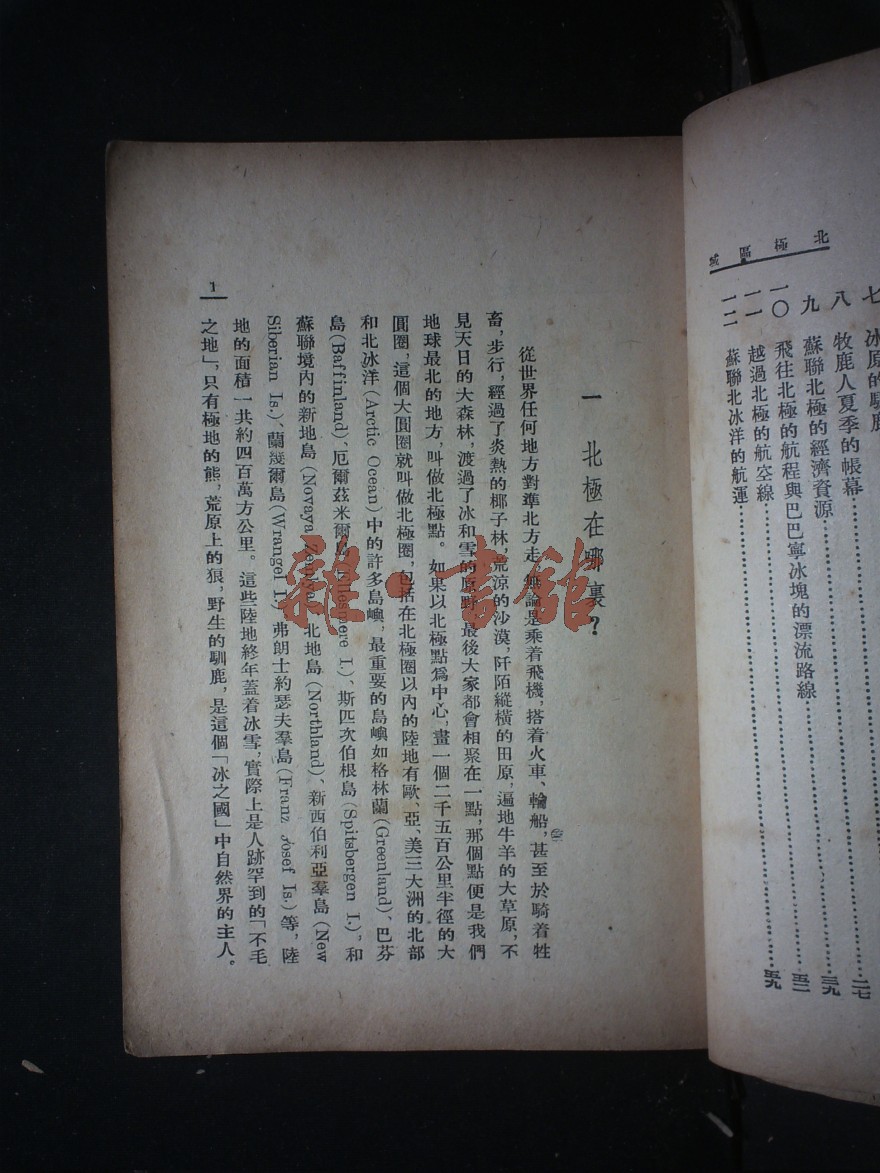 北極區域
七 冰原的馴鹿
八 牧鹿人夏季的帳幕……二七
九 蘇聯北極的經濟資源……三九
一〇 飛往北極的航程與巴巴寧冰塊的漂流路線
一一 越過北極的航空線……五二
一二 蘇聯北冰洋的航運……五九
一 北極在哪裏？
從世界任何地方對準北方走，無論是乘着飛機，搭着火車、輪船，甚至於騎着牲
畜，步行，經過了炎熱的椰子林，荒涼的沙漠，阡陌縱橫的田原，遍地牛羊的大草原，不
見天日的大森林，渡過了冰和雪的原野，最後大家都會相聚在一點，那個點便是我們
地球最北的地方，叫做北極點。如果以北極點爲中心，畫一個二千五百公里半徑的大
圓圈，這個大圓圈就叫做北極圈，包括在北極圈以內的陸地有歐、亞、美三大洲的北部
和北冰洋(Arctic Ocean)中的許多島嶼，最重要的島嶼如格林蘭(Greenland)、巴芬
島(Baffinland)、厄爾茲米爾島(Ellesmere I.)、斯匹次伯根島(Spitsbergen I.)，和
蘇聯境內的新地島(Novaya Zemlya)、北地島(Northland)、新西伯利亞羣島(New
Siberian Is.)、蘭幾爾島(Wrangel I.)、弗朗士約瑟夫羣島(Franz Josef Is.)等，陸
地的面積一共約四百萬方公里。這些陸地終年蓋着冰雪，實際上是人跡罕到的「不毛
之地」，只有極地的熊，荒原上的狼，野生的馴鹿，是這個「冰之國」中自然界的主人。
1
雜·書館